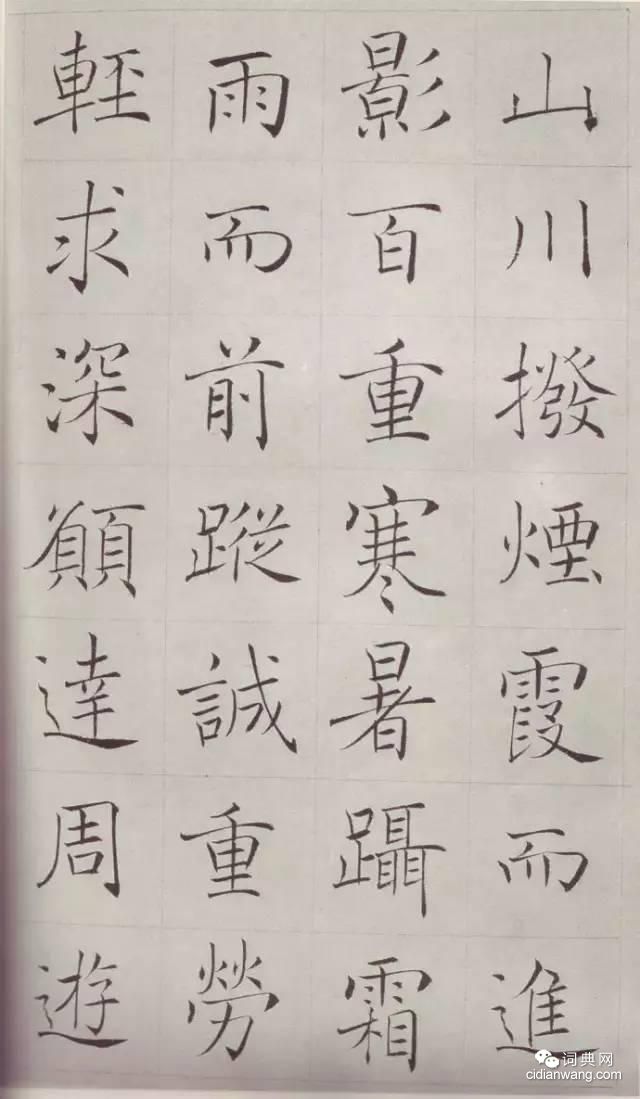 山川撥煙霞而進
影百重寒暑躡霜
雨而前蹤誠重勞
輕求深願達周遊
词典网
cidianwang.com